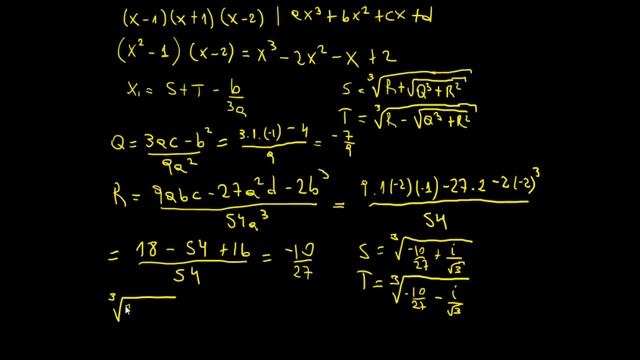 (x-1)(x+1)(x-2) | ax³+bx²+cx+d
(x²-1)(x-2) = x³-2x²-x+2
x₁ = S+T - b/3a
S = ∛(R+√(Q³+R²))
T = ∛(R-√(Q³+R²))
Q = (3ac-b²)/9a² = (3.1.(-1)-4)/9 = -7/9
R = (9abc-27a²d-2b³)/54a³ = (9.1(-2)(-1)-27.2-2(-2)³)/54
= (18-54+16)/54 = -10/27
S = ∛(-10/27 + i/√3)
T = ∛(-10/27 - i/√3)
∛